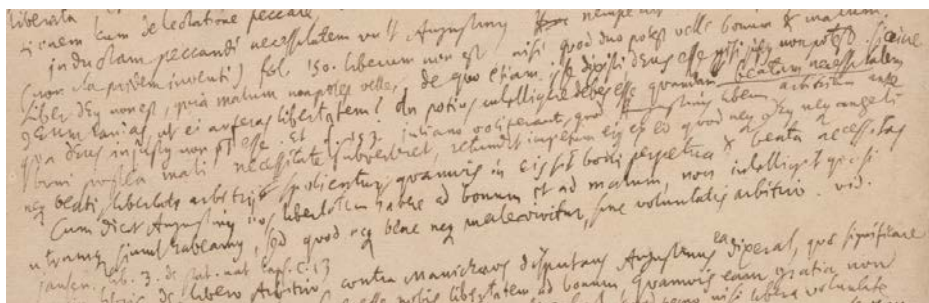 liberta
 cum delectatione peccare
indictam peccandi necessitatem vult Augustinus nempe
(non lapidem inventi) fol 150. liberum non est nisi quod duo potest velle bonum & malum.
liber Deus non est, quia malum non potest velle, de quo etiam ipse dixisti Deus esse injustus non potest. siccine
Deum laudas, ut ei auferas libertatem? An potius intelligere debes esse quandam beatam necessitatem
qua Deus injustus non potest esse. Et f. 153. Juliano vociferanti, quod Augustinus liberum arbitrium
boni postea mali necessitate subverteret, retundit impetum ejus ex eo quod neque Deus neque angeli
neque beati, libertate arbitrii spolientur, quamvis in eis sit boni perpetua & beata necessitas
Cum dicit Augustinus nos libertatem habere ad bonum et ad malum, non intelligit quasi
utramque simul habeamus, sed quod neque bene neque male vivitur, sine voluntatis arbitrio. vid.
Jansen. lib. 3. de stat. nat. laps. c. 13
 libris de libero Arbitrio contra Manichaeos disputans Augustinus ea dixerat, quae significare
 esse nobis libertatem ad bonum, quamvis eam gratia non
 nisi libera voluntate